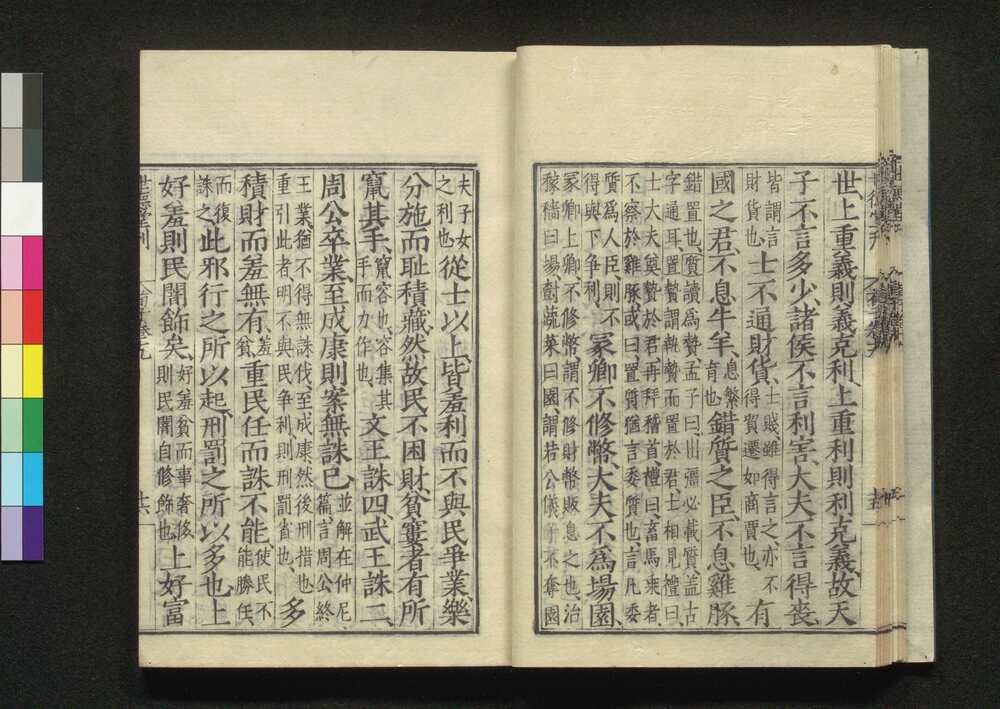 世上重義則義克利上重利則利克義故天
子不言多少諸侯不言利害大夫不言得喪
皆謂言
財貨也
士不通財貨
士賤雖得言之亦不
得貿遷如商賈也
有
國之君不息牛羊
息繁
育也
錯質之臣不息雞豚
錯置也質讀爲贄孟子曰出彊必載質盖古
字通耳置贄謂執贄而置於君士相見禮曰
士大夫奠贄於君再拜稽首禮曰畜馬乘者
不察於雞豚或曰置質猶言委質也言凡委
質爲人臣則不
得與下争利
冢卿不修幣大夫不爲場園
冢卿上卿不修幣謂不修財幣販息之也治
稼穡曰場樹蔬菜曰園謂若公儀子不奪園
夫子女
之利也
從士以上皆羞利而不與民爭業樂
分施而耻積藏然故民不困財貧窶者有所
竄其手
竄容也容集其
手而力作也
文王誅四武王誅二
周公卒業至成康則案無誅已
並解在仲尼
篇言周公終
王業猶不得無誅伐至成康然後刑措也
重引此者明不與民争利則刑罰省也
多
積財而羞無有
羞
貧
重民任而誅不能
使民不
能勝任
而復
誅之
此邪行之所以起刑罰之所以多也上
好羞則民闇飾矣
好羞貧而事奢侈
則民闇自修飾也
上好富
世德堂刊
十六